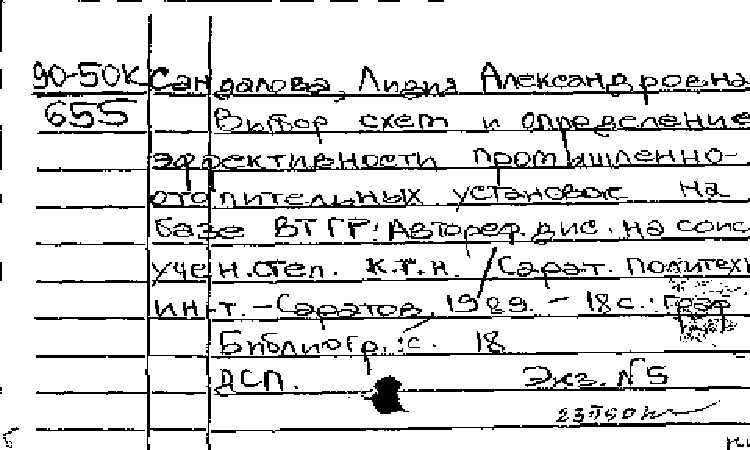 90-50К Сандалова, Лидия Александровна
655 Выбор схем и определение
эффективности промышленно-
отопительных установок на
базе ВТГР: Автореф. дис. на соис
учен. степ. к.т.н. / Сарат. политехн
ин-т. - Саратов, 1989. - 18 с.: граф
Библиогр.: с. 18
ДСП. Экз. №5